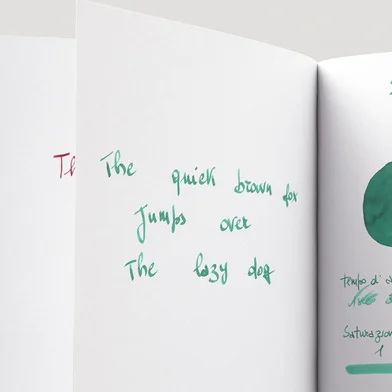 The quick brown fox
Jumps over
The lazy dog
tempo di
Saturazion
1